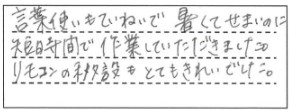 言葉使いもていねいで 暑くてせまいのに
短時間で作業していただきました。
リモコンの移設もとてもきれいでした。